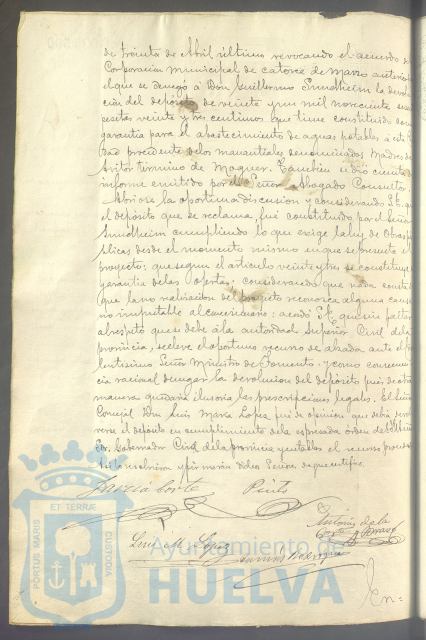 de treinta de Abril último revocando el acuerdo de
Corporacion municipal de catorce de Marzo anterior
el que se denegó a Don Guillermo Sundheim la devolu
ción del depósito de veinte y un mil novecientas
pesetas veinte y tres centimos que tiene constituido como
garantia para el abastecimiento de aguas potables a esta
dad procedente de los manantiales denominados Madres de
Avitor término de Moguer. Tambien se dio cuenta
informe emitido por el Señor Abogado Consultor.
Abriose la oportuna discusion y considerando S.E. que
el depósito que se reclama, fué constituido por el Señor
Sundheim cumpliendo lo que exige la ley de Obras pú
blicas desde el momento mismo en que se presenta el
proyecto; que segun el articulo veinte y tres se constituye
garantia de las ofertas; considerando que nada consta
que la no realizacion del proyecto reconozca alguna causa
no imputable al concesionario: acordó S.E. que sin faltar
al respeto que se debe á la autoridad Superior Civil de la
provincia, se eleve el oportuno recurso de alzada ante el
lentisimo Señor Ministro de Fomento, y como consecuen
cia racional denegar la devolucion del depósito pues de otra
manera quedaria ilusoria las prescripciones legales. El Señor
Concejal Don Luis Maria Lopez fué de opinion que debia devol
verse el depósito en cumplimiento de la expresada órden del
Sr. Gobernador Civil de la provincia y entablar el recurso
y firmarán dichos Señores de que certifico.
Garcia Cortés Pinto
Antonio de la
Corte
Luis M. Lopez
PORTUS MARIS
ET TERRÆ
CUSTODIA
Ayuntamiento de
HUELVA
En=